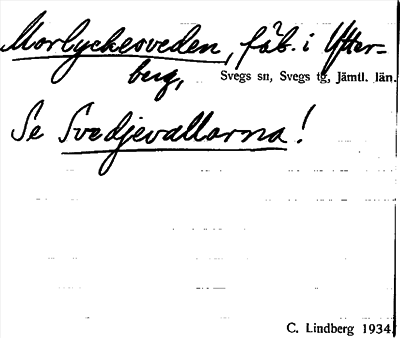 Morlyckesveden, fäb. i Ytter=
berg, Svegs sn, Svegs tg, Jämtl. län.
Se Svedjevallarna!
C. Lindberg 1934.